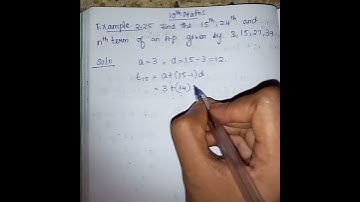 10th Maths
Example 2.25 Find the 15th, 24th and
nth term of an AP given by 3, 15, 27, 39
Soln a = 3, d = 15 - 3 = 12.
t15 = a + (15-1)d
= 3 + (14)